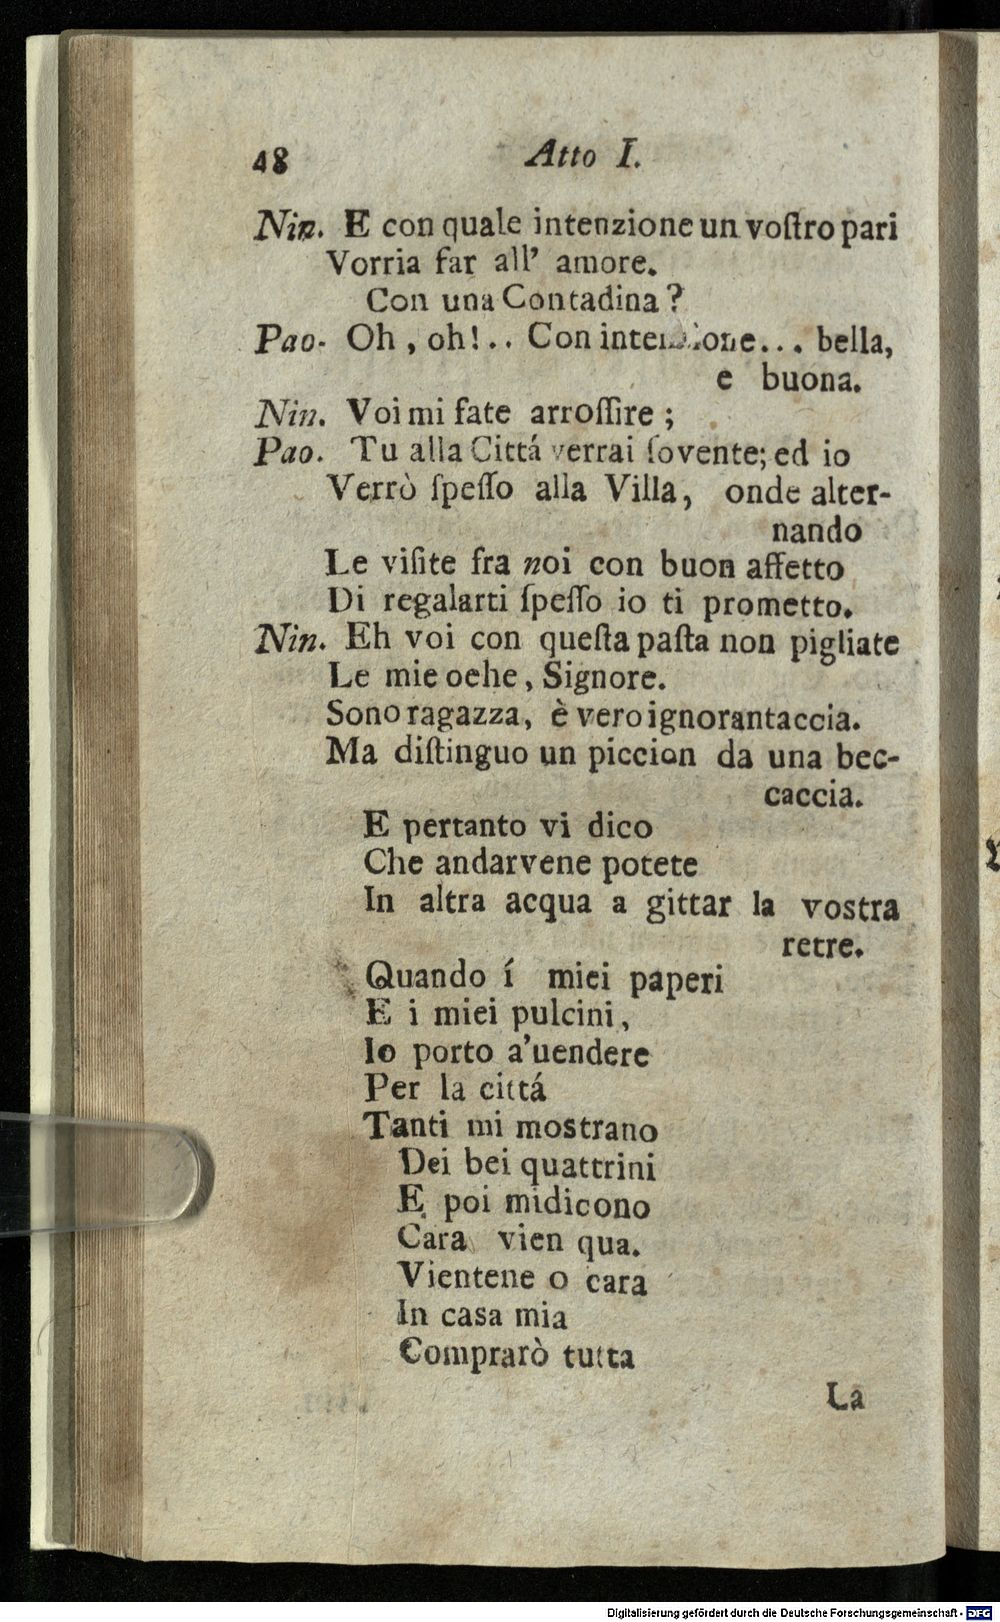 48 Atto I.
Nin. E con quale intenzione un voſtro pari
Vorria far all' amore.
Con una Contadina?
Pao. Oh, oh!.. Con intenzione... bella,
e buona.
Nin. Voi mi fate arroſſire;
Pao. Tu alla Cittá verrai ſovente; ed io
Verrò ſpeſſo alla Villa, onde alter-
nando
Le viſite fra noi con buon affetto
Di regalarti ſpeſſo io ti prometto.
Nin. Eh voi con queſta paſta non pigliate
Le mie oehe, Signore.
Sono ragazza, è vero ignorantaccia.
Ma diſtinguo un piccion da una bec-
caccia.
E pertanto vi dico
Che andarvene potete
In altra acqua a gittar la vostra
retre.
Quando í miei paperi
E i miei pulcini,
Io porto a'uendere
Per la cittá
Tanti mi mostrano
Dei bei quattrini
E poi midicono
Cara vien qua.
Vientene o cara
In casa mia
Comprarò tutta
La
Digitalisierung gefördert durch die Deutsche Forschungsgemeinschaft - DFG